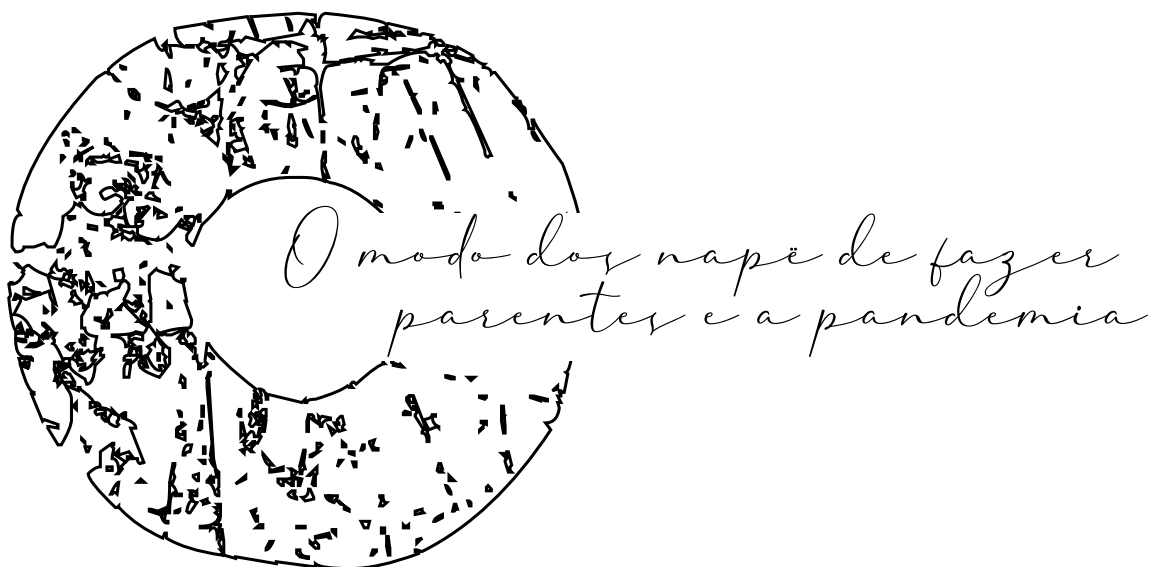 O modo dos napë de fazer
parentes e a pandemia